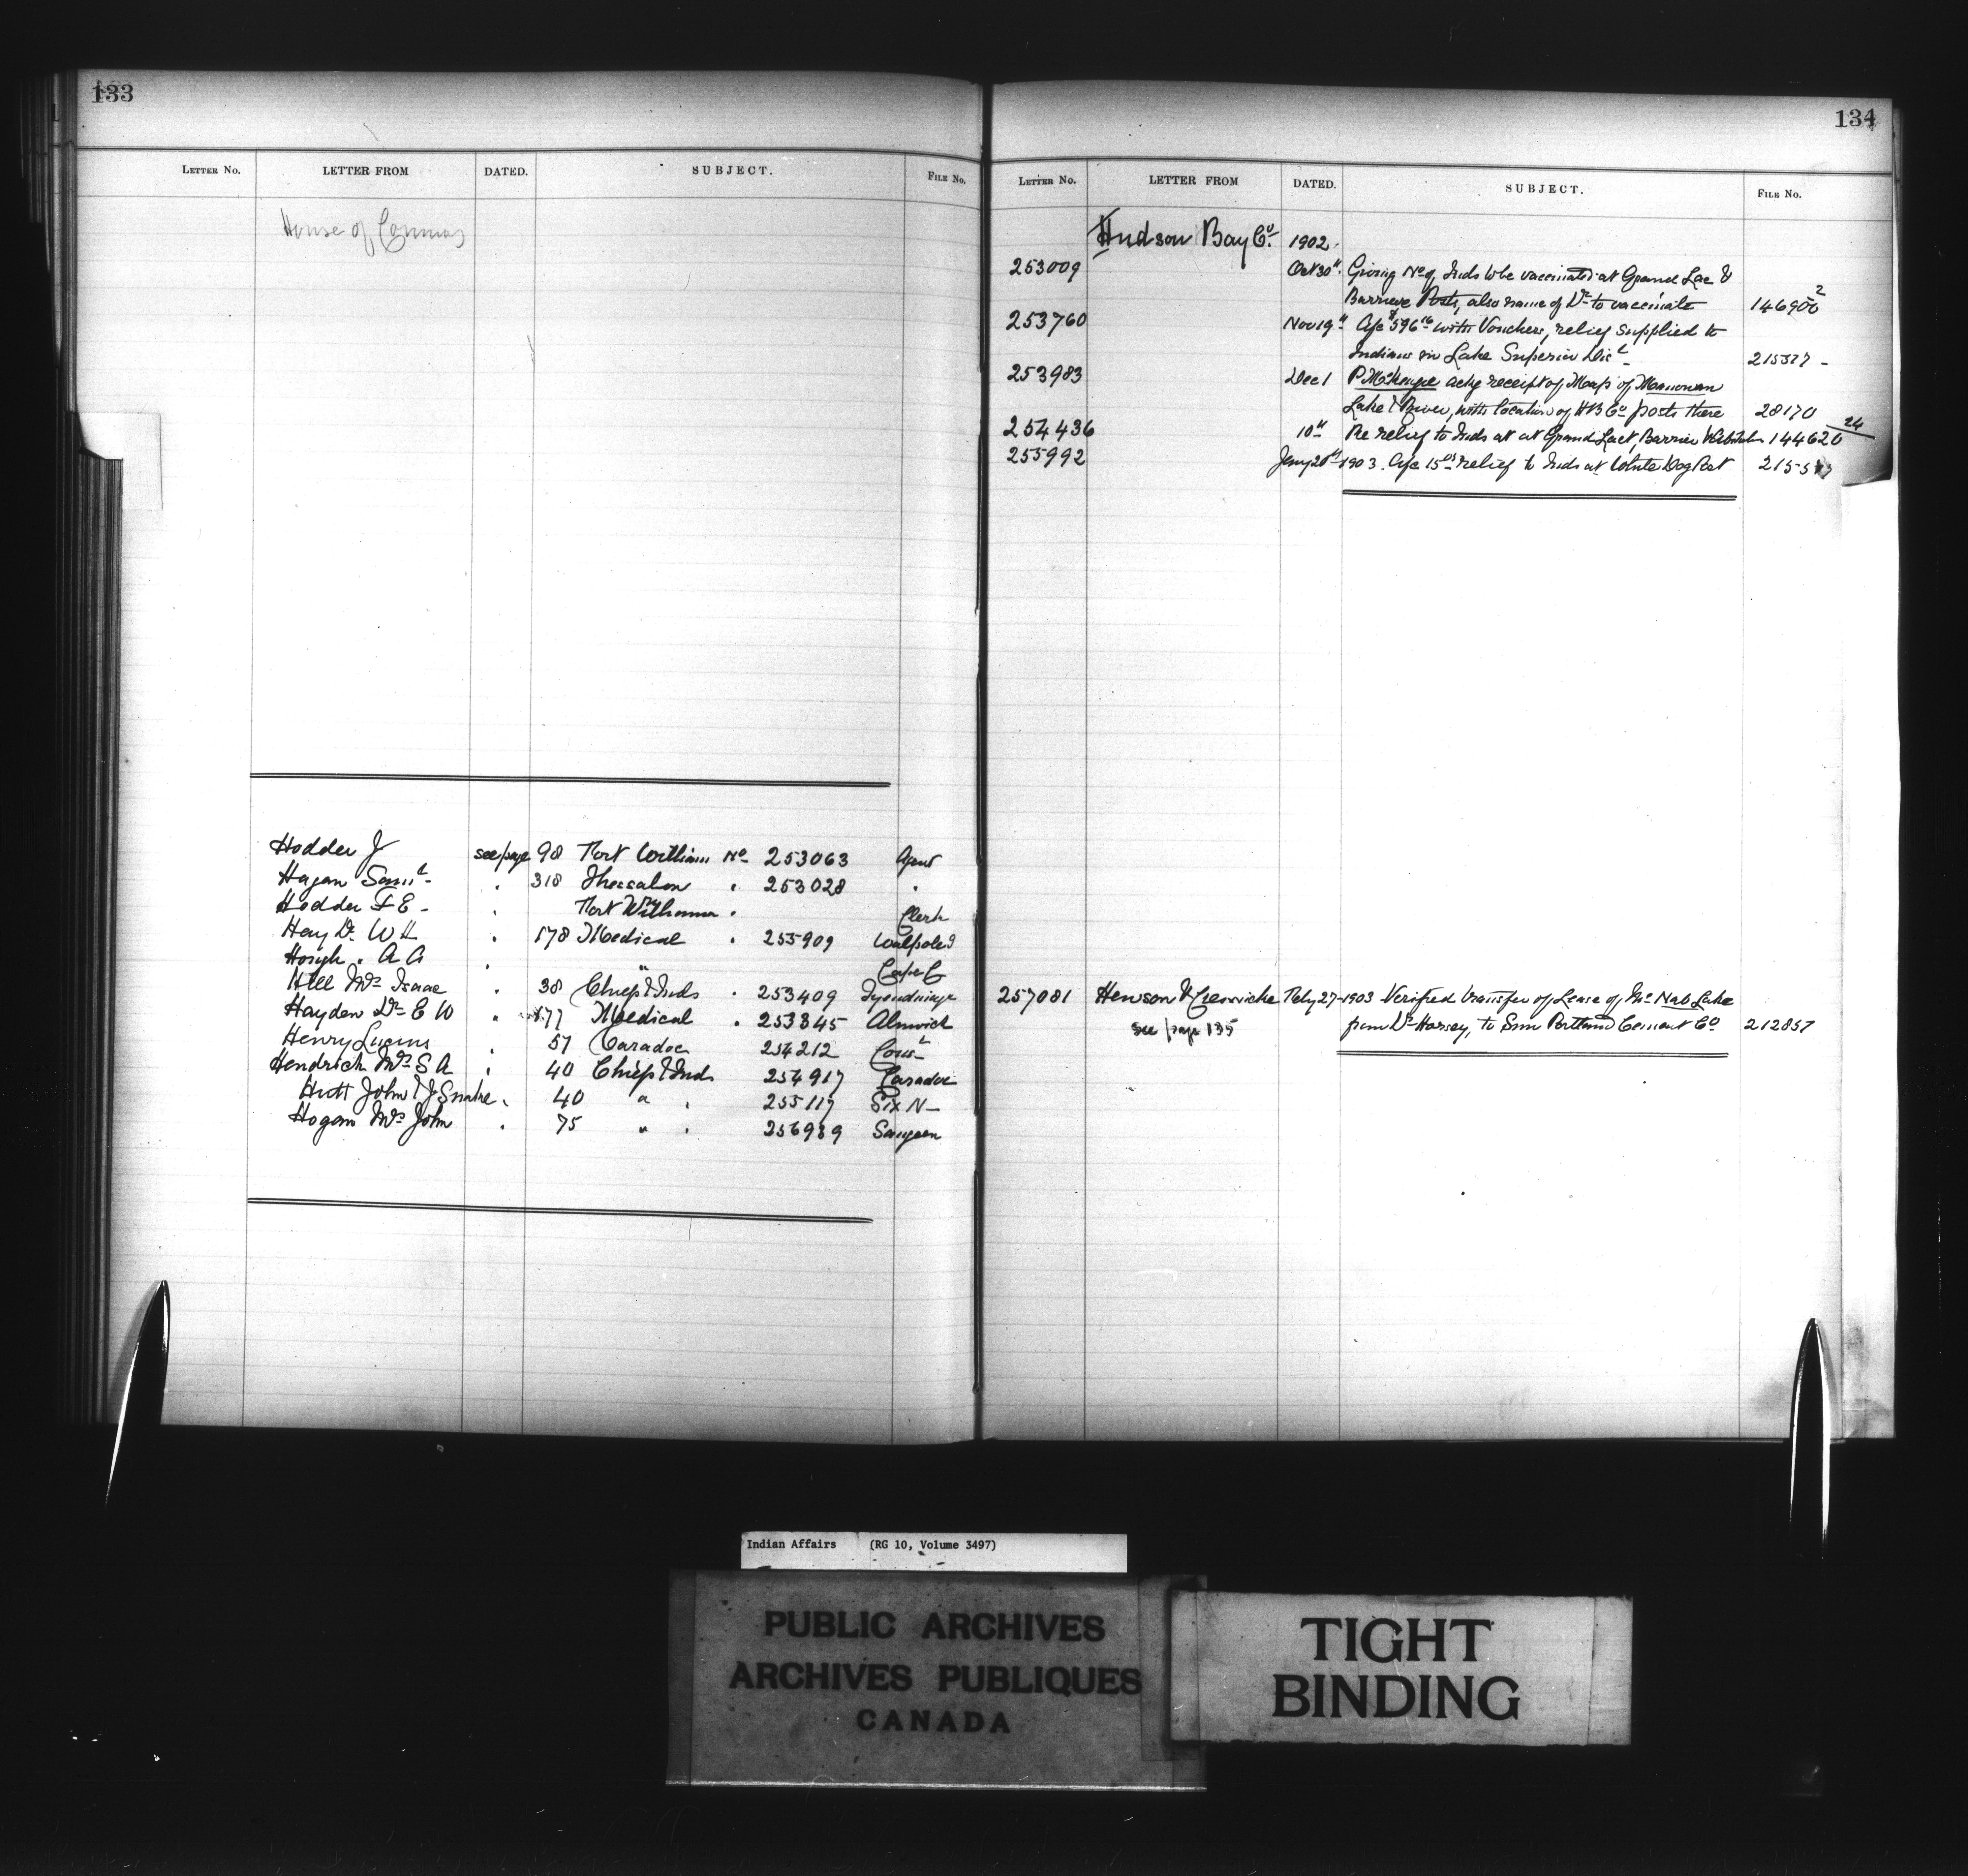 133
LETTER No. LETTER FROM DATED. SUBJECT. FILE No.
House of Commons
Hodder J see page 98 Fort William No 253063 Agent
Hagan Saml - " 318 Thessalon " 253028 "
Hodder F E - " Fort William " Clerk
Hay Dr W H " 178 Medical " 255909 Walpole I
Hough " A A " " Cape C
Hill Mrs Isaac " 38 Chiefs & Inds " 253409 Tyendinaga
Hayden Dr E W " 177 Medical " 253345 Alnwick
Henry Lucius " 57 Caradoc 254212
Hendrick Mrs S A " 40 Chiefs & Inds 254917 Caradoc
Hutt John & J Snake " 40 " " 255117 Six N -
Hogan Mrs John " 75 " " 256989 Saugeen
134
LETTER No. LETTER FROM DATED. SUBJECT. FILE No.
Hudson Bay Co. 1902.
253009 Oct 30" Giving No of Inds to be vaccinated at Grand Lac &
Barriere Posts, also name of Dr to vaccinate 146900 2
253760 Nov 19" A/c $596 16 with Vouchers, relief supplied to
Indians in Lake Superior Dist - 215577 -
253983 Dec 1 P McKenzie ackg receipt of Map of
Lake & River, with location of H B Co posts there 28170
254436 10" Re relief to Inds at at Grand Lact, Barrier 144620 24
255992 Jany 20" 1903. A/c 15 relief to Inds at White Dog Post
257081 Hewson & Creswicke Feby 27 - 1903 Verified transfer of Lease of McNab Lake
see page 135 from Dr Harvey, to Sun Portland Cement Co 212857
Indian Affairs (RG 10, Volume 3497)
PUBLIC ARCHIVES
ARCHIVES PUBLIQUES
CANADA
TIGHT
BINDING